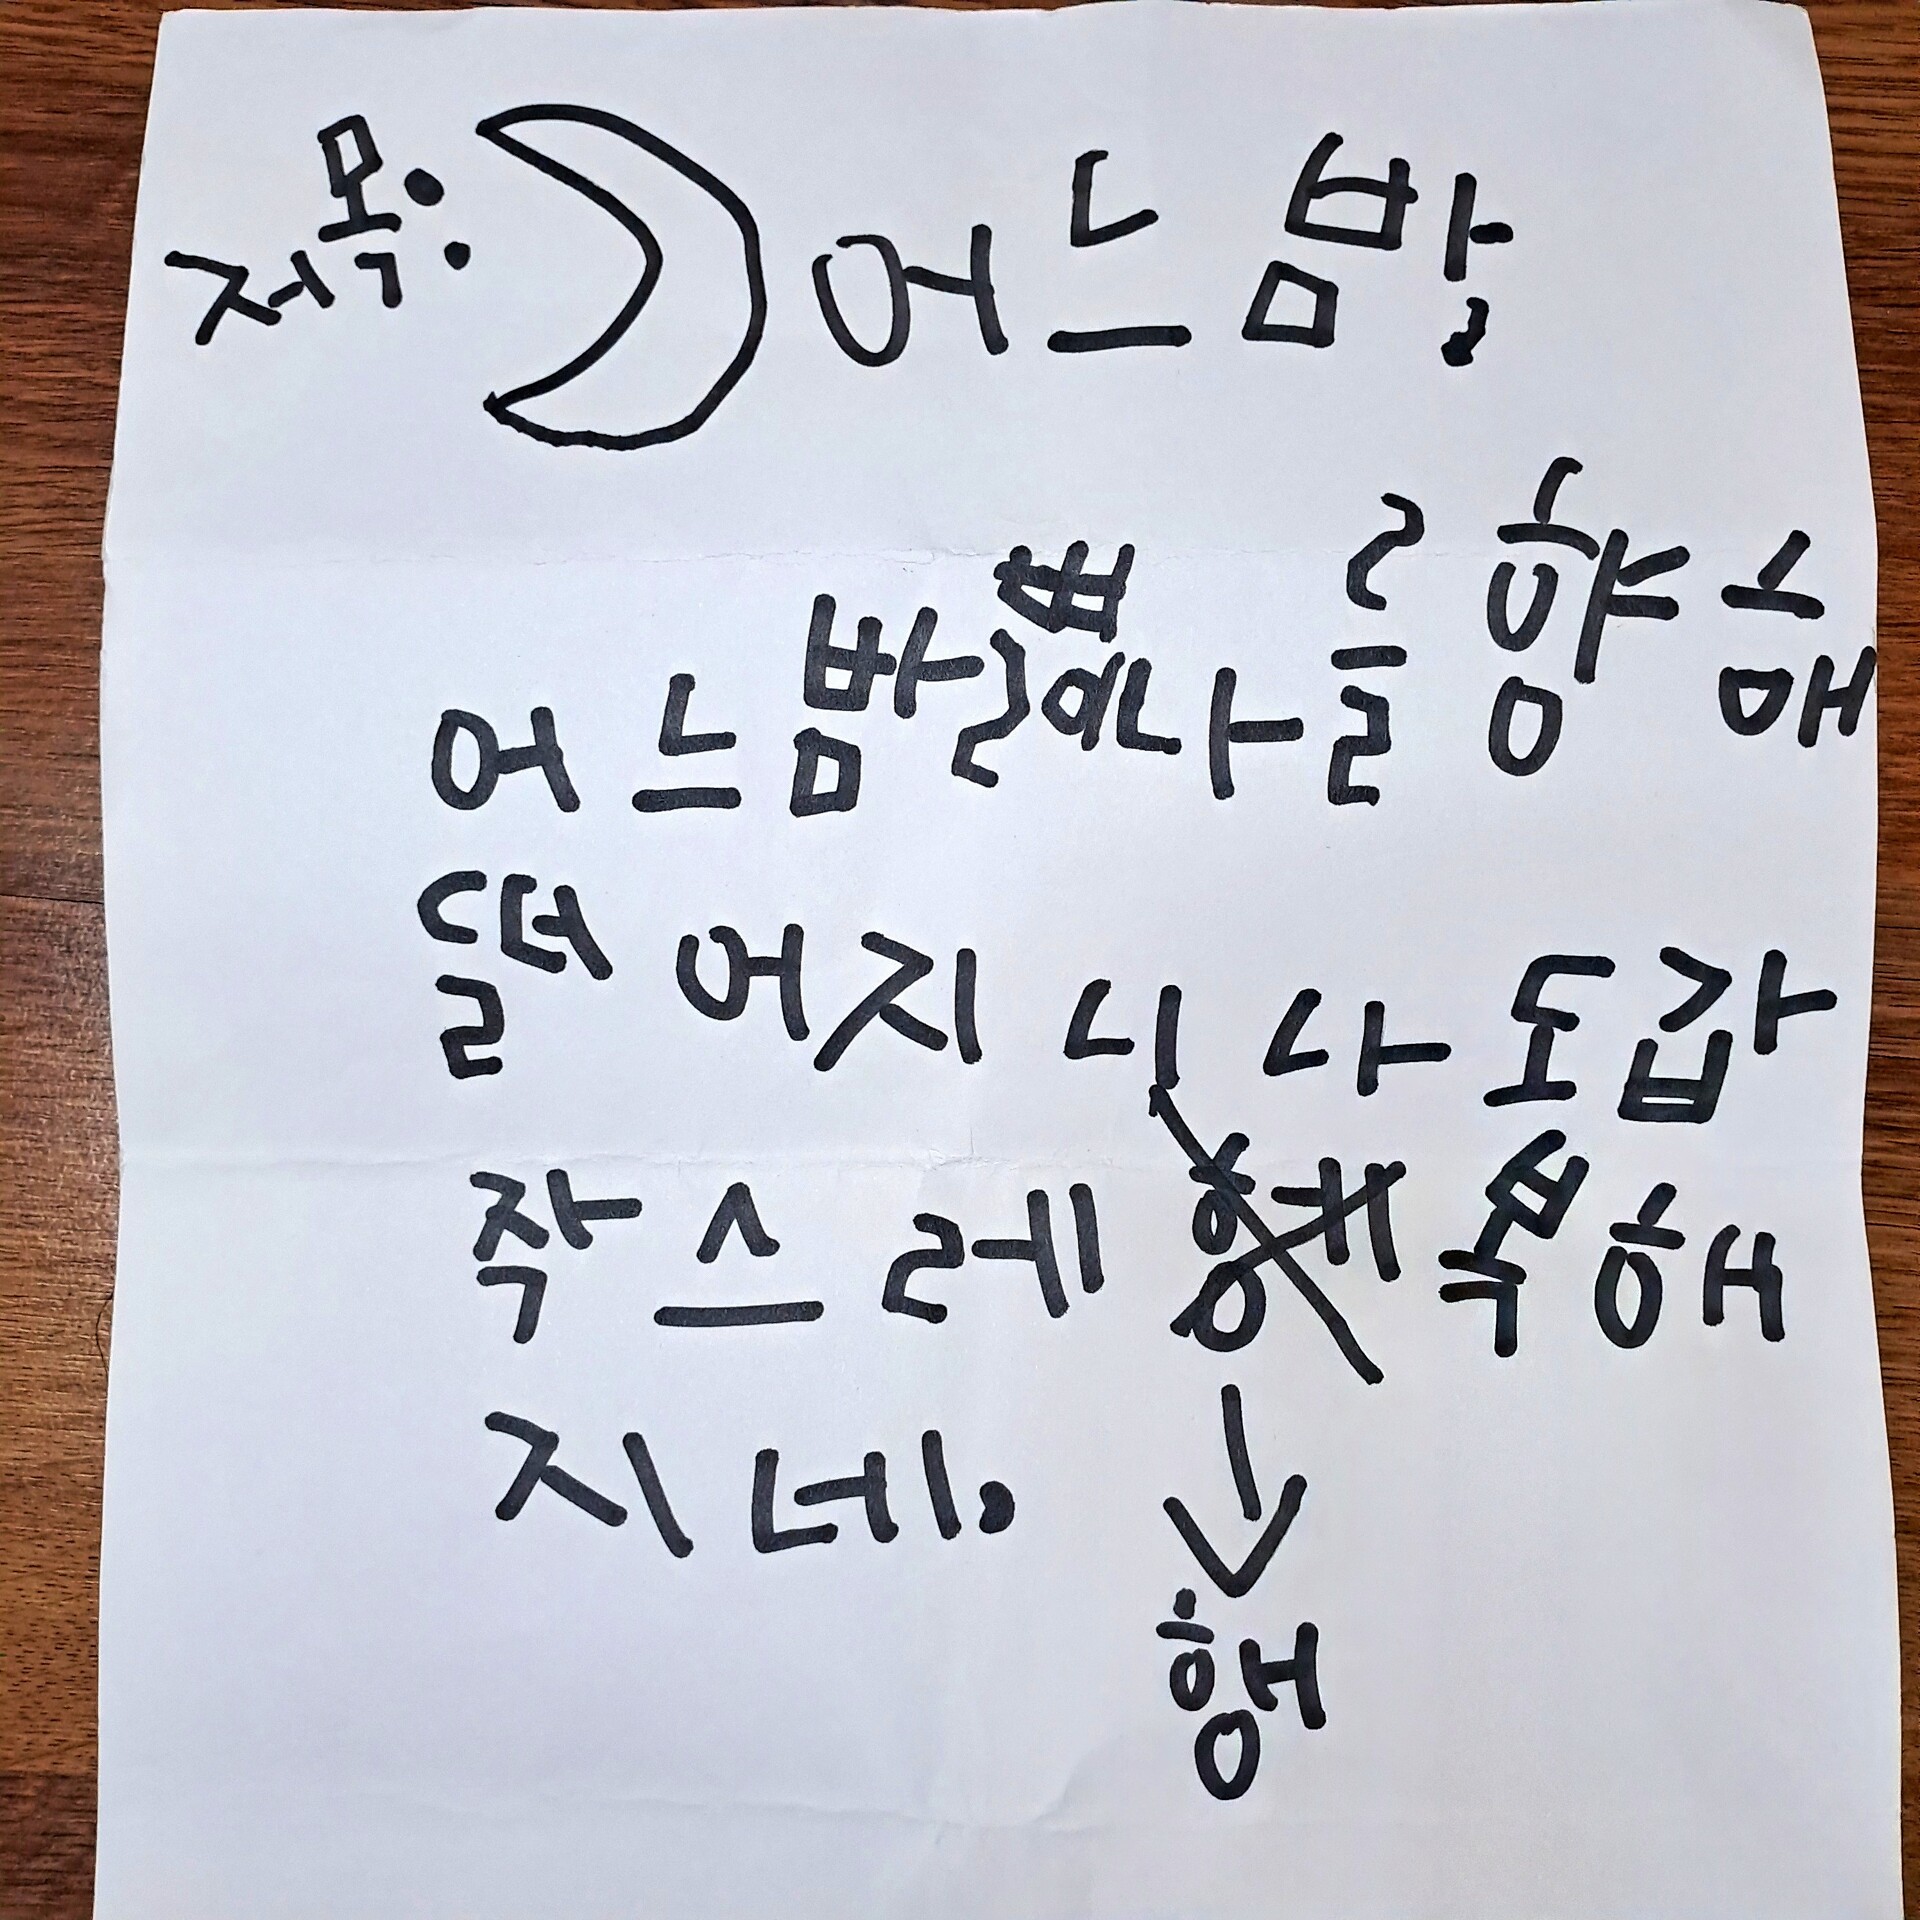 저목: 어느 밤,
어느 밤 별이 나를 향해
떨어지니 나도 갑
작스레 복해
지네.
행